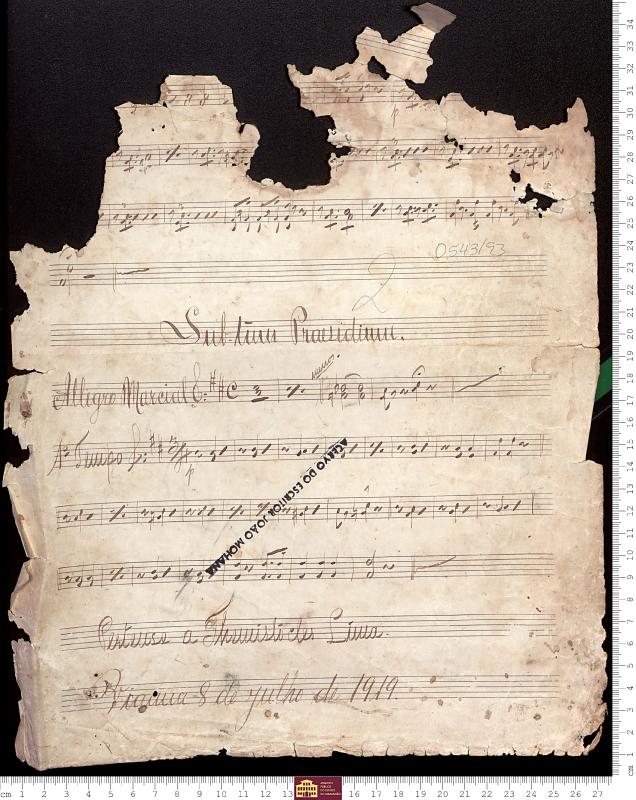 p
0543/93
2
Sub tuum Praesidium.
Allegro Marcial C
1º Tempo
p
ACERVO DO ESCRITOR JOÃO MOHANA
Pertence a Themistocles Lima.
Vianna 8 de julho de 1919.
cm 1 2 3 4 5 6 7 8 9 10 11 12 13 16 17 18 19 20 21 22 23 24 25 26 27
cm 1 2 3 4 5 6 7 8 9 10 11 12 13 14 15 16 17 18 19 20 21 22 23 24 25 26 27 28 29 30 31 32 33 34